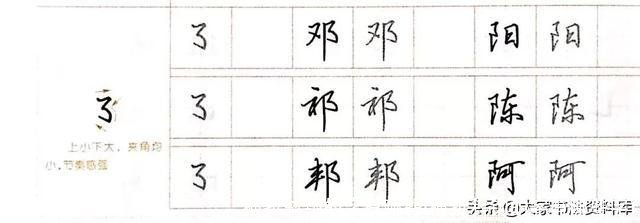 了 邓 邓 阳 阳
了 了 祁 祁 陈 陈
上小下大，夹角均
小，节奏感强
了 邦 邦 阿 阿
头条 @大家书法资料库